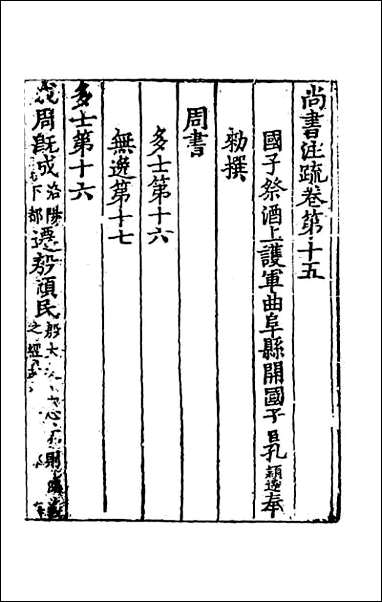 尚書注疏卷第十五
國子祭酒上護軍曲阜縣開國子臣孔穎達奉
勅撰
周書
多士第十六
無逸第十七
多士第十六
成周既成洛陽下都遷殷頑民殷大心不則德義之經